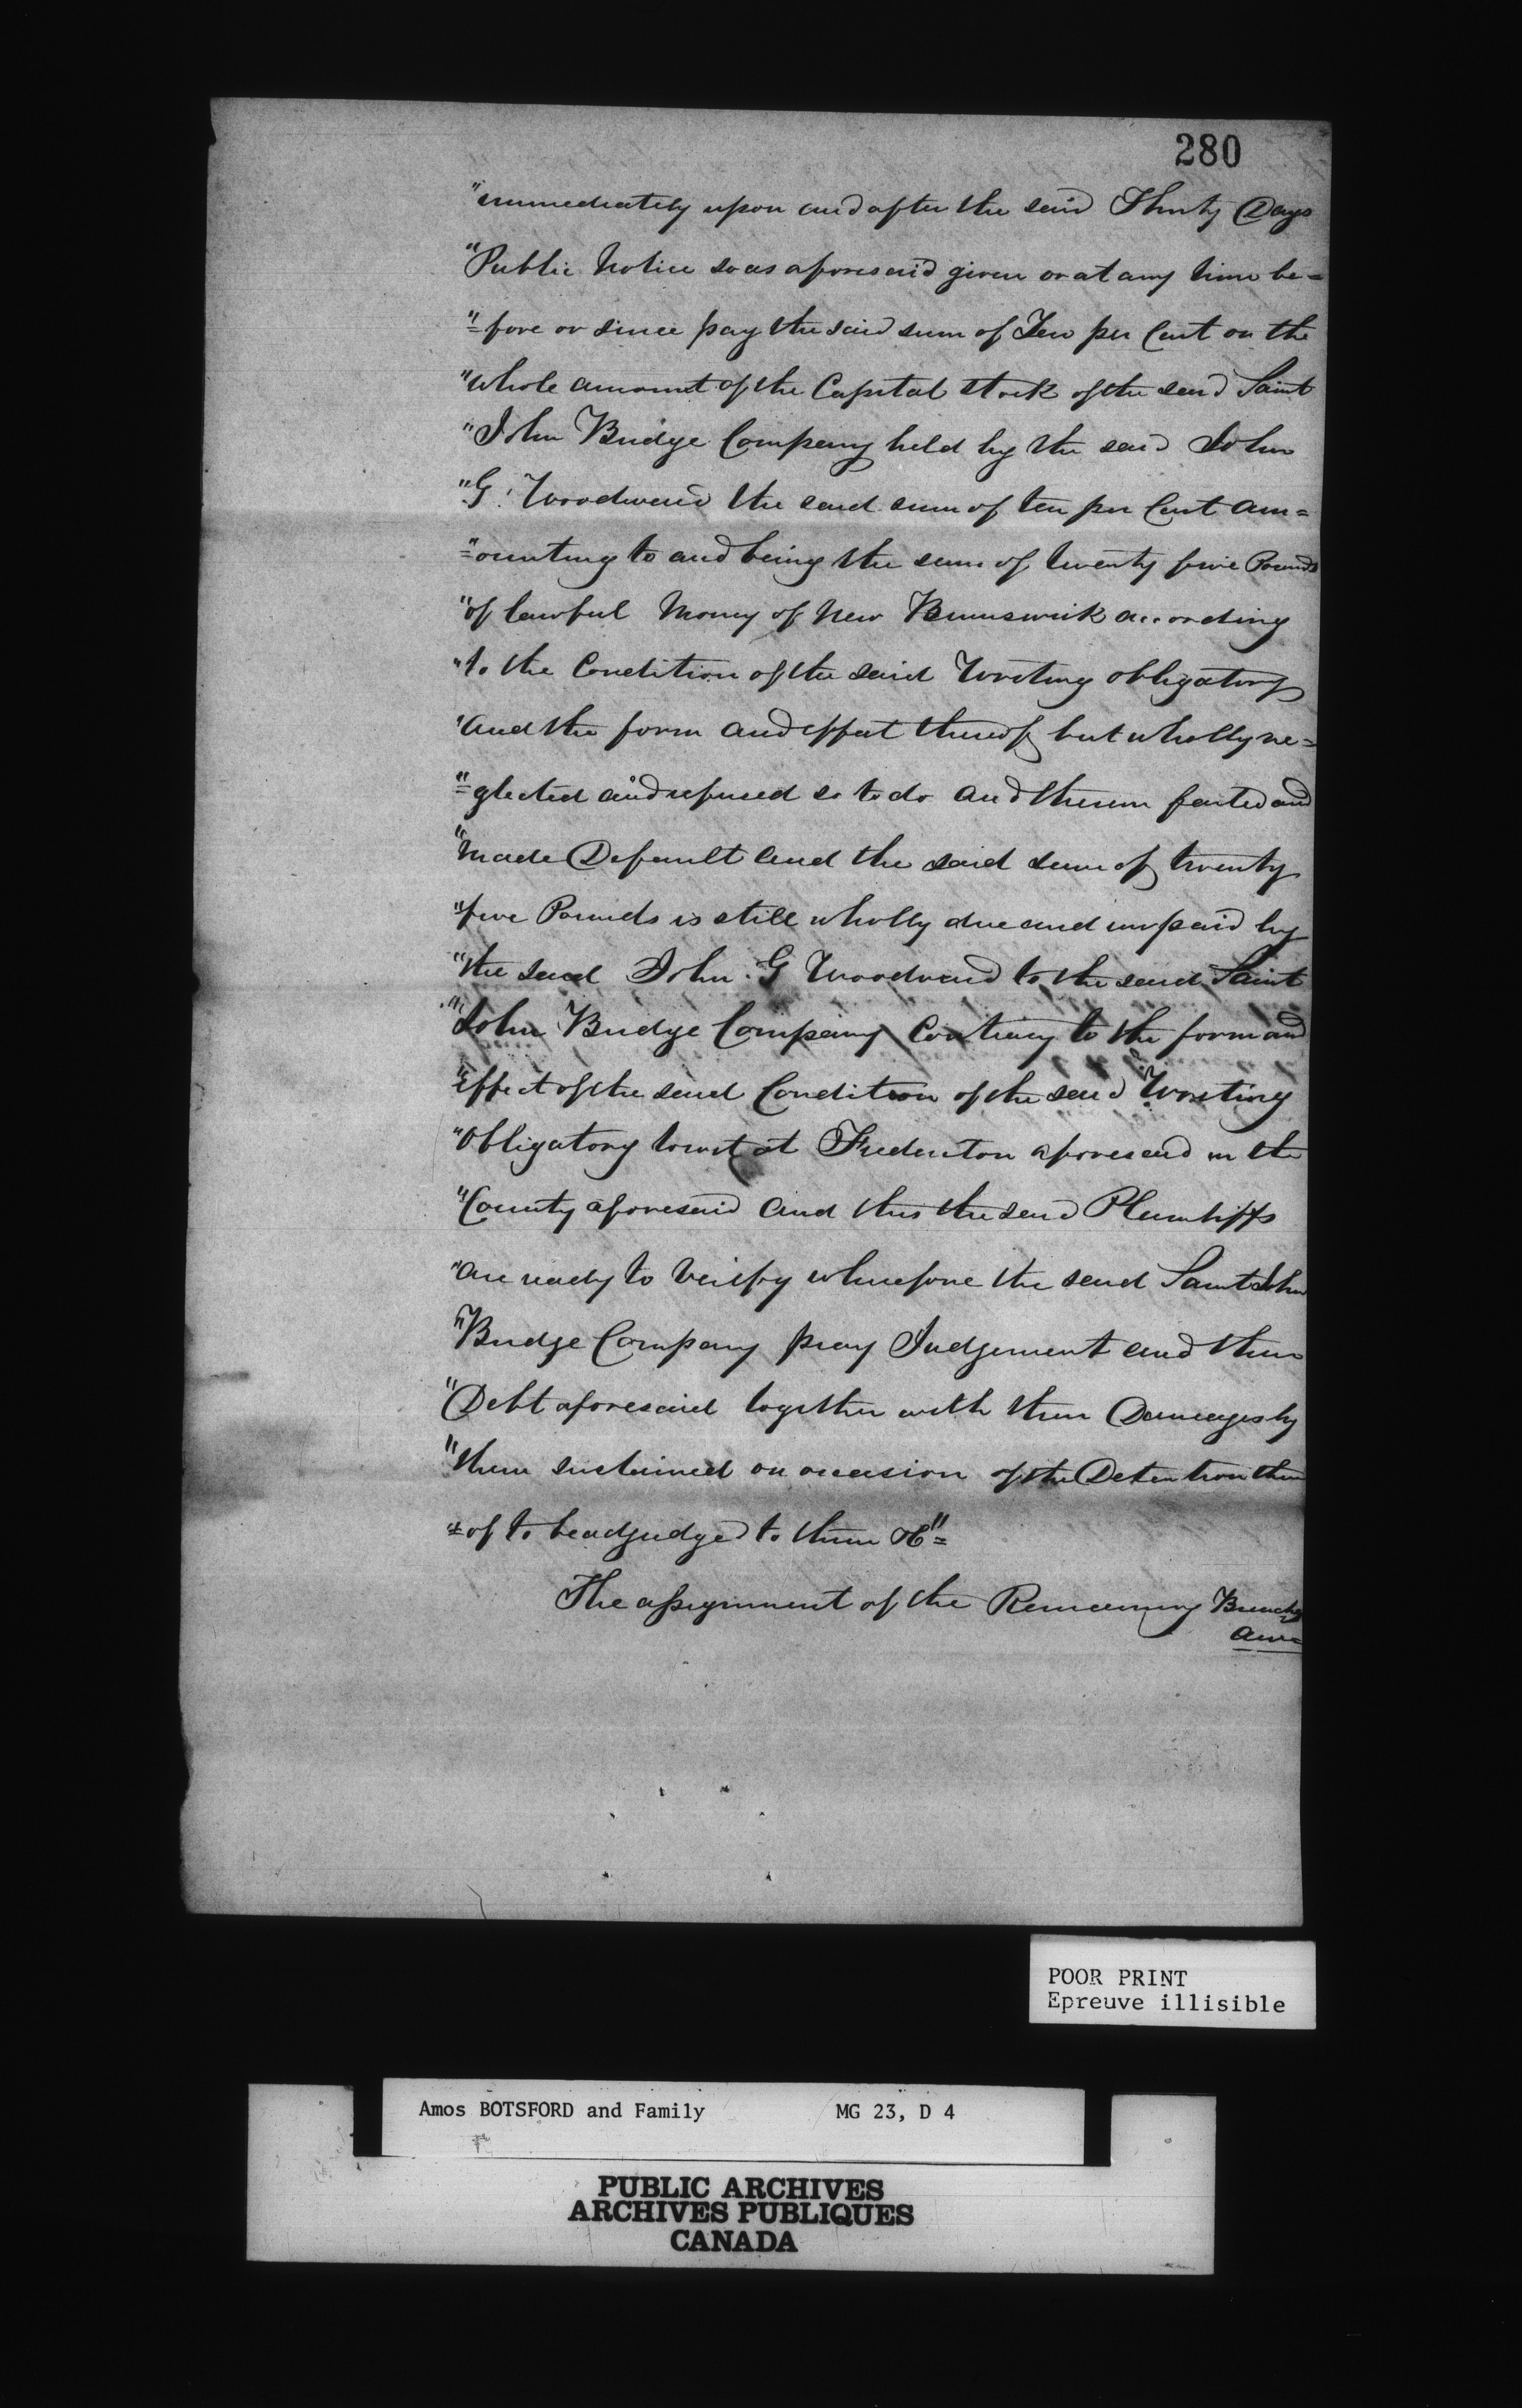 280
"immediately upon and after the said Thirty Days
"Public Notice so as aforesaid given or at any time be=
"=fore or since pay the said sum of Ten per Cent on the
"whole amount of the Capital Stock of the said Saint
"John Bridge Company held by the said John
"G. Woodward the said sum of ten per Cent am=
"=ounting to and being the sum of twenty five Pounds
"of lawful Money of New Brunswick according
"to the Condition of the said Writing obligatory
"and the form and effect thereof but wholly ne=
"=glected and refused so to do and therein failed and
"made Default and the said sum of twenty
"five Pounds is still wholly due and unpaid by
"the said John G Woodward to the said Saint
"John Bridge Company Contrary to the form and
"effect of the said Condition of the said Writing
"Obligatory towit at Fredericton aforesaid in the
"County aforesaid and this the said Plaintiffs
"are ready to verify wherefore the said Saint John
"Bridge Company pray Judgement and their
"Debt aforesaid together with their Damages by
"them sustained on occasion of the Detention there
"=of to be adjudged to them &c"=
The assignment of the Remaining Breaches
are=
POOR PRINT
Epreuve illisible
Amos BOTSFORD and Family MG 23, D 4
PUBLIC ARCHIVES
ARCHIVES PUBLIQUES
CANADA